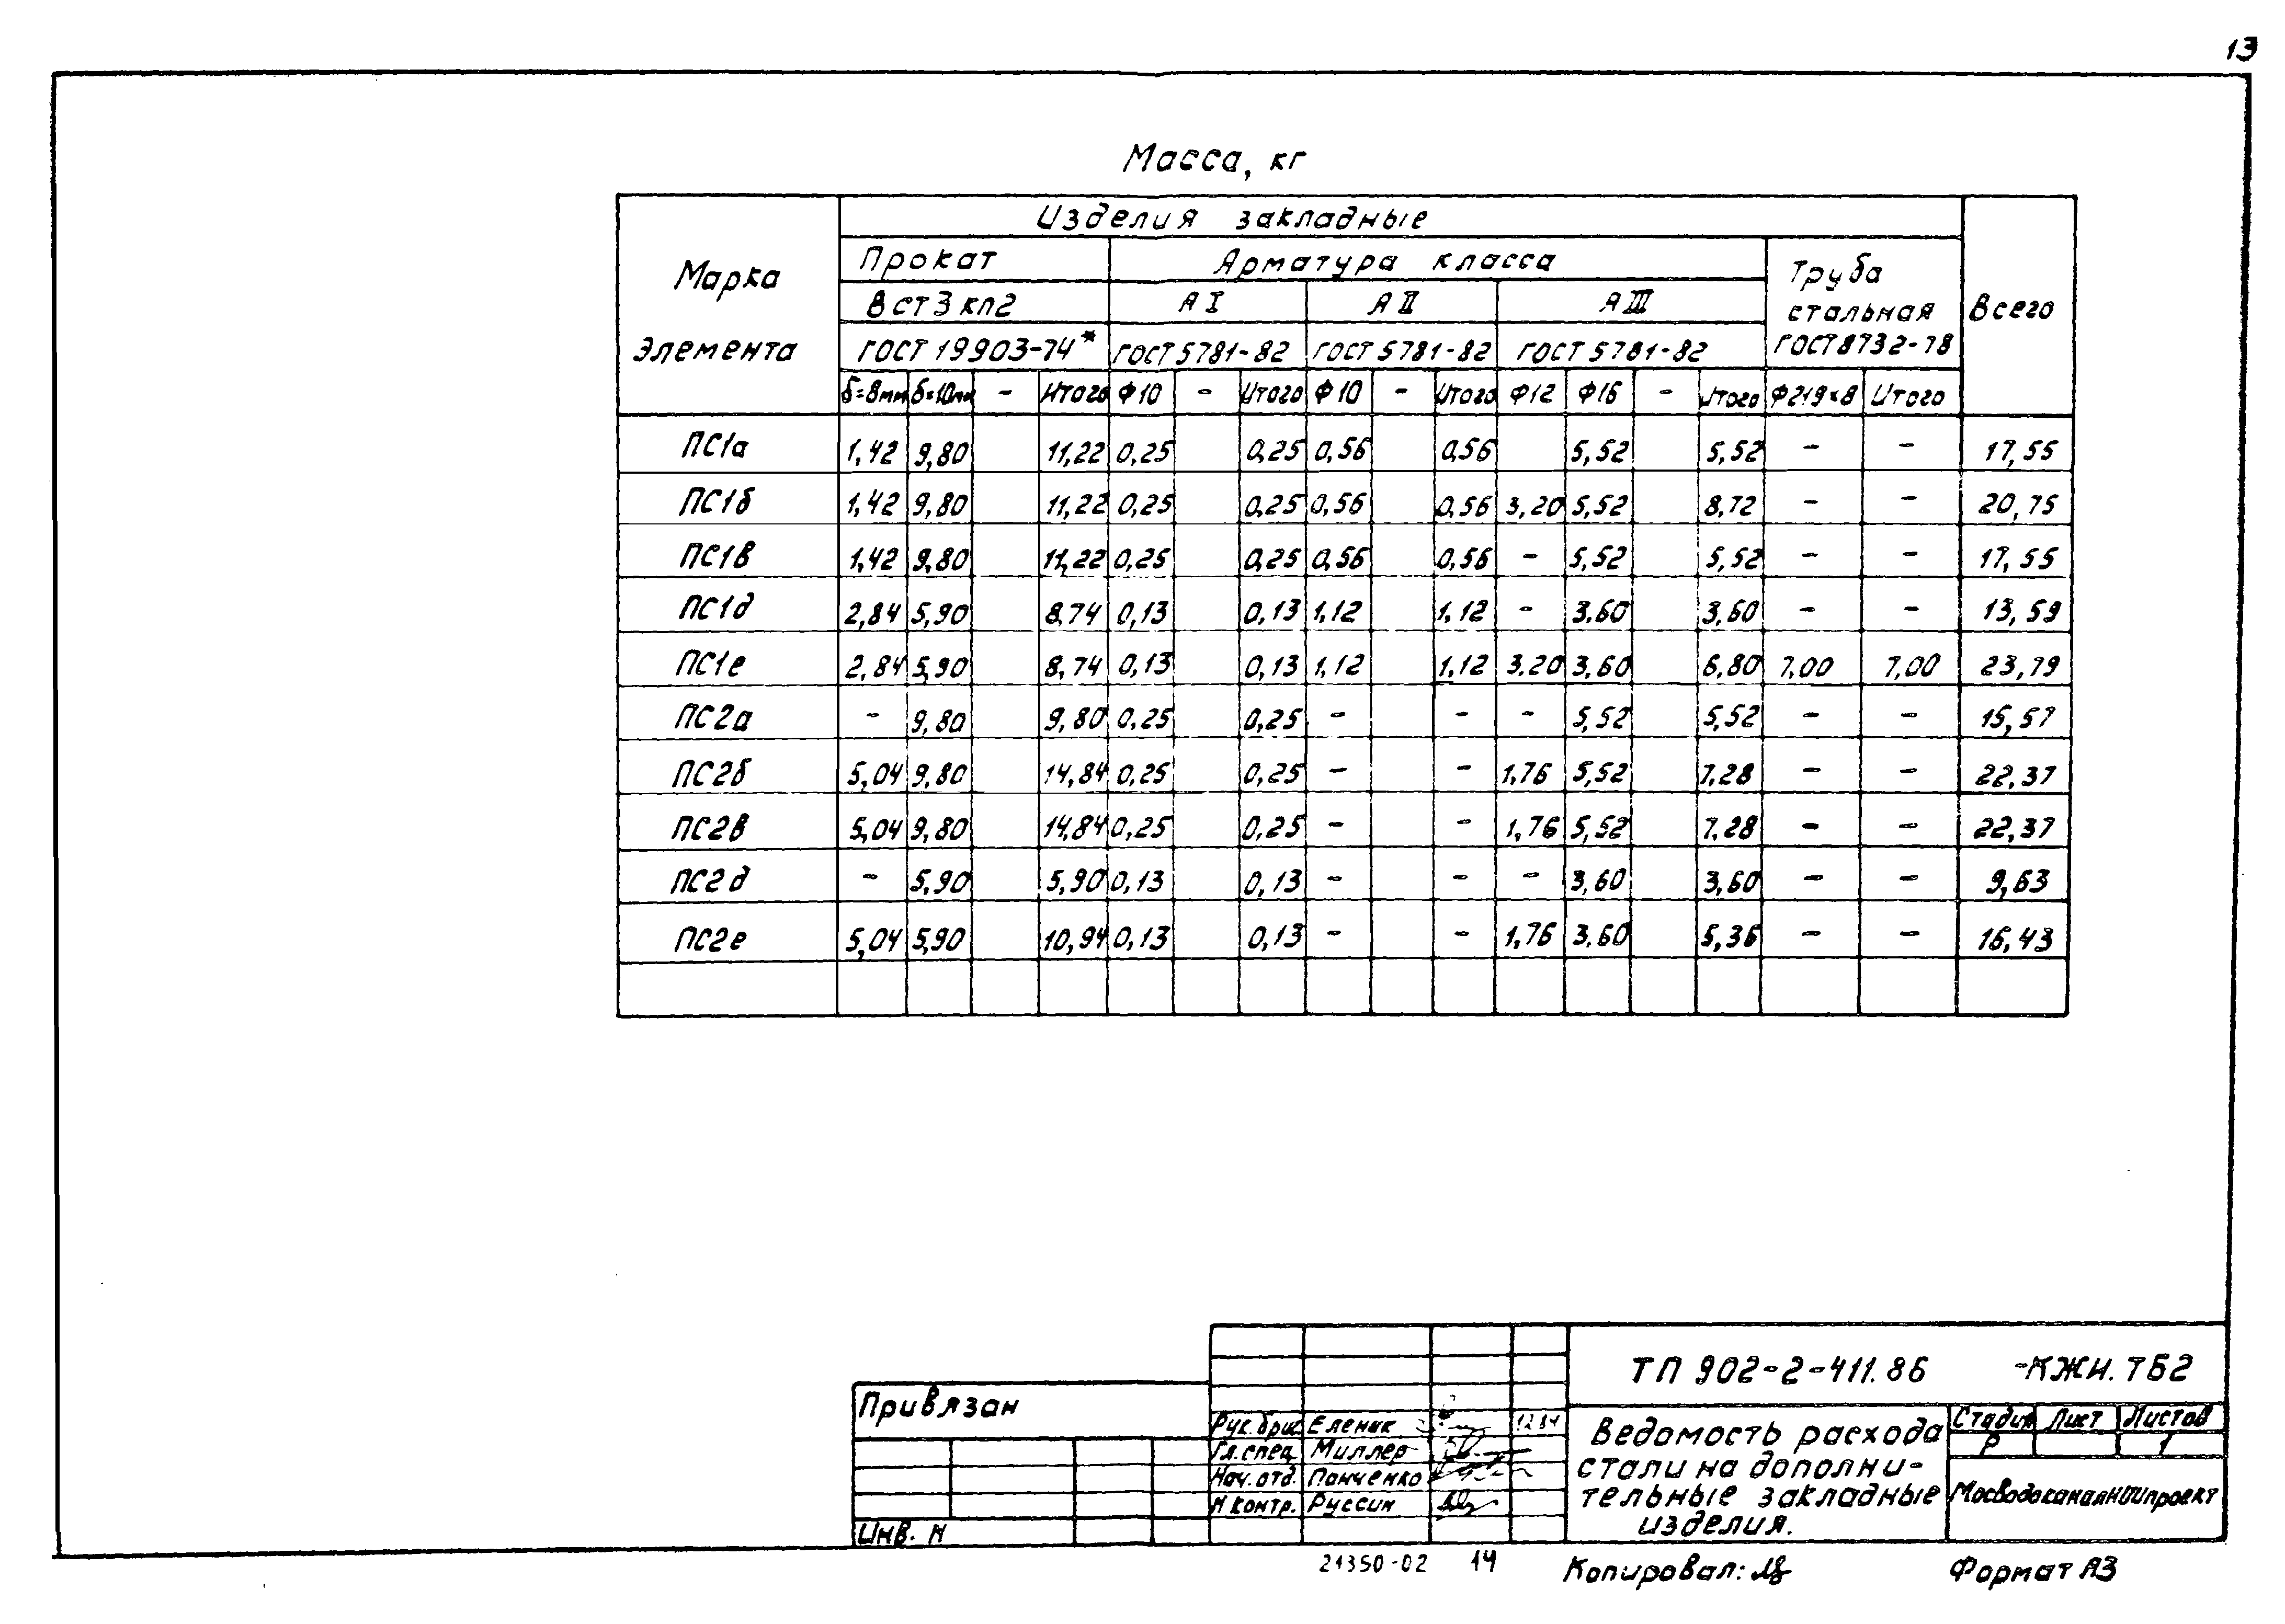 13
Масса, кг
Марка элемента | Изделия закладные | Всего
Прокат | Арматура класса | Труба стальная ГОСТ 8732-78
ВСт3кп2 | АI | АII | АIII
ГОСТ 19903-74* | ГОСТ 5781-82 | ГОСТ 5781-82 | ГОСТ 5781-82
δ=8мм | δ=10мм | - | Итого | Ф10 | - | Итого | Ф10 | - | Итого | Ф12 | Ф16 | - | Итого | Ф219×8 | Итого
ПС1а | 1,42 | 9,80 | 11,22 | 0,25 | 0,25 | 0,56 | 0,56 | 5,52 | 5,52 | - | - | 17,55
ПС1б | 1,42 | 9,80 | 11,22 | 0,25 | 0,25 | 0,56 | 0,56 | 3,20 | 5,52 | 8,72 | - | - | 20,75
ПС1в | 1,42 | 9,80 | 11,22 | 0,25 | 0,25 | 0,56 | 0,56 | - | 5,52 | 5,52 | - | - | 17,55
ПС1д | 2,84 | 5,90 | 8,74 | 0,13 | 0,13 | 1,12 | 1,12 | - | 3,60 | 3,60 | - | - | 13,59
ПС1е | 2,84 | 5,90 | 8,74 | 0,13 | 0,13 | 1,12 | 1,12 | 3,20 | 3,60 | 6,80 | 7,00 | 7,00 | 23,79
ПС2а | - | 9,80 | 9,80 | 0,25 | 0,25 | - | - | - | 5,52 | 5,52 | - | - | 15,57
ПС2б | 5,04 | 9,80 | 14,84 | 0,25 | 0,25 | - | - | 1,76 | 5,52 | 7,28 | - | - | 22,37
ПС2в | 5,04 | 9,80 | 14,84 | 0,25 | 0,25 | - | - | 1,76 | 5,52 | 7,28 | - | - | 22,37
ПС2д | - | 5,90 | 5,90 | 0,13 | 0,13 | - | - | - | 3,60 | 3,60 | - | - | 9,63
ПС2е | 5,04 | 5,90 | 10,94 | 0,13 | 0,13 | - | - | 1,76 | 3,60 | 5,36 | - | - | 16,43
Привязан
Инв. N
Рук. бриг. Еленик 12.84
Гл. спец. Миллер
Нач. отд. Панченко
Н контр. Руссин
ТП 902-2-411.86 -КЖИ.ТБ2
Ведомость расхода
стали на дополни-
тельные закладные
изделия.
Стадия Лист Листов
Р 1
МосводоканалНИИпроект
21350-02 14
Копировал:
Формат А3